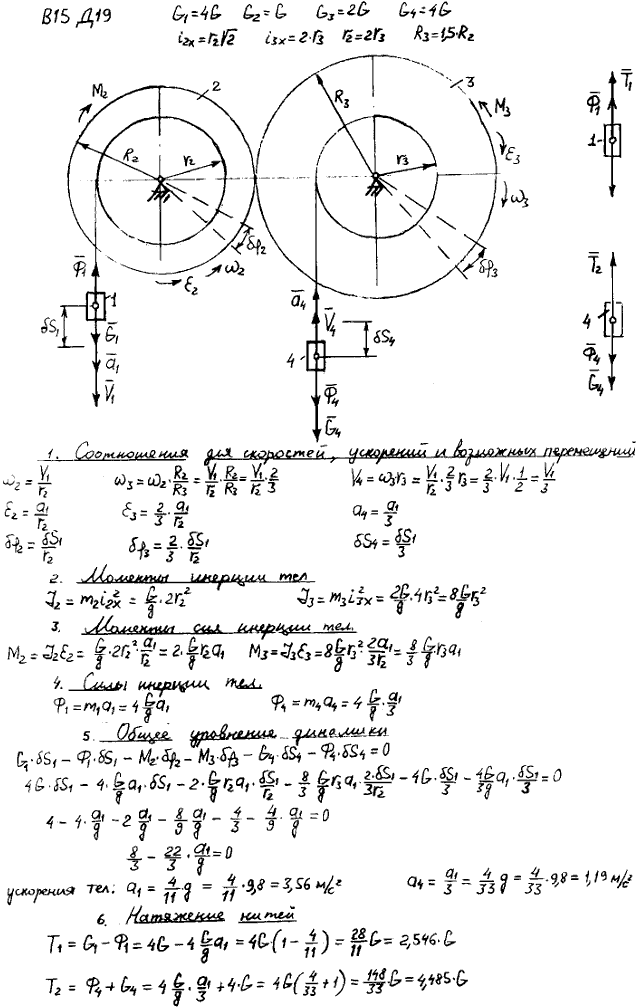 В15 Д19 G₁=4G G₂=G G₃=2G G₄=4G
i₂ₓ=r₂√2 i₃ₓ=2·r₃ r₂=2r₃ R₃=1,5·R₂
M₂ 2 R₂ r₂ δφ₂ ω₂ ε₂
3 R₃ r₃ M₃ ε₃ ω₃ δφ₃
Φ̄₁ 1 δS₁ Ḡ₁ ā₁ V̄₁
ā₄ V̄₄ δS₄ 4 Φ̄₄ Ḡ₄
T̄₁ Φ̄₁ 1
T̄₂ 4 Φ̄₄ Ḡ₄
1. Соотношения для скоростей, ускорений и возможных перемещений
ω₂=V₁/r₂ ω₃=ω₂·R₂/R₃=V₁/r₂·R₂/R₃=V₁/r₂·2/3 V₄=ω₃r₃=V₁/r₂·2/3 r₃=2/3·V₁·1/2=V₁/3
ε₂=a₁/r₂ ε₃=2/3·a₁/r₂ a₄=a₁/3
δφ₂=δS₁/r₂ δφ₃=2/3·δS₁/r₂ δS₄=δS₁/3
2. Моменты инерции тел
J₂=m₂i²₂ₓ=G/g·2r₂² J₃=m₃i²₃ₓ=2G/g·4r₃²=8G/g r₃²
3. Моменты сил инерции тел.
M₂=J₂ε₂=G/g·2r₂²·a₁/r₂=2·G/g r₂a₁ M₃=J₃ε₃=8G/g r₃²·2a₁/3r₂=8/3 G/g r₃a₁
4. Силы инерции тел.
Φ₁=m₁a₁=4G/g a₁ Φ₄=m₄a₄=4 G/g·a₁/3
5. Общее уровнение динамики
G₁·δS₁-Φ₁·δS₁-M₂·δφ₂-M₃·δφ₃-G₄·δS₄-Φ₄·δS₄=0
4G·δS₁-4·G/g a₁·δS₁-2·G/g r₂a₁·δS₁/r₂-8/3 G/g r₃a₁·2·δS₁/3r₂-4G·δS₁/3-4G/3g a₁·δS₁/3=0
4-4·a₁/g-2 a₁/g-8/9 a₁/g-4/3-4/9·a₁/g=0
8/3-22/3·a₁/g=0
ускорения тел: a₁=4/11 g=4/11·9,8=3,56 м/с² a₄=a₁/3=4/33 g=4/33·9,8=1,19 м/с²
6. Натяжение нитей
T₁=G₁-Φ₁=4G-4G/g a₁=4G·(1-4/11)=28/11 G=2,546·G
T₂=Φ₄+G₄=4 G/g·a₁/3+4·G=4G(4/33+1)=148/33 G=4,485·G